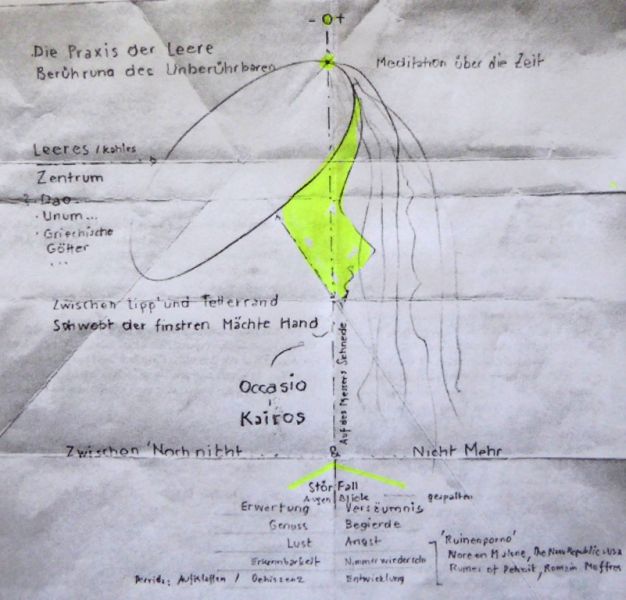 - 0 +
Die Praxis der Leere
Berührung des Unberührbaren
Meditation über die Zeit
Leeres / kahles
Zentrum
? Dao..
· Unum...
· Griechische
Götter
...
Zwischen Lipp' und Tellerrand
Schwebt der finstren Mächte Hand
Auf des Messers Schneide
Occasio
Kairos
Zwischen 'Noch nicht & Nicht Mehr
Stör Fall
Augen Blicke gespalten
Erwertung Versäumnis
Genuss Begierde
Lust Angst
Erkennbarkeit Nimmerwiedersehn
Derrida: Aufklaffen / Dehiszenz Entwicklung
'Ruinenporno'
Noreen Malone, The New Republic, USA
Ruines of Detroit, Romain Meffre